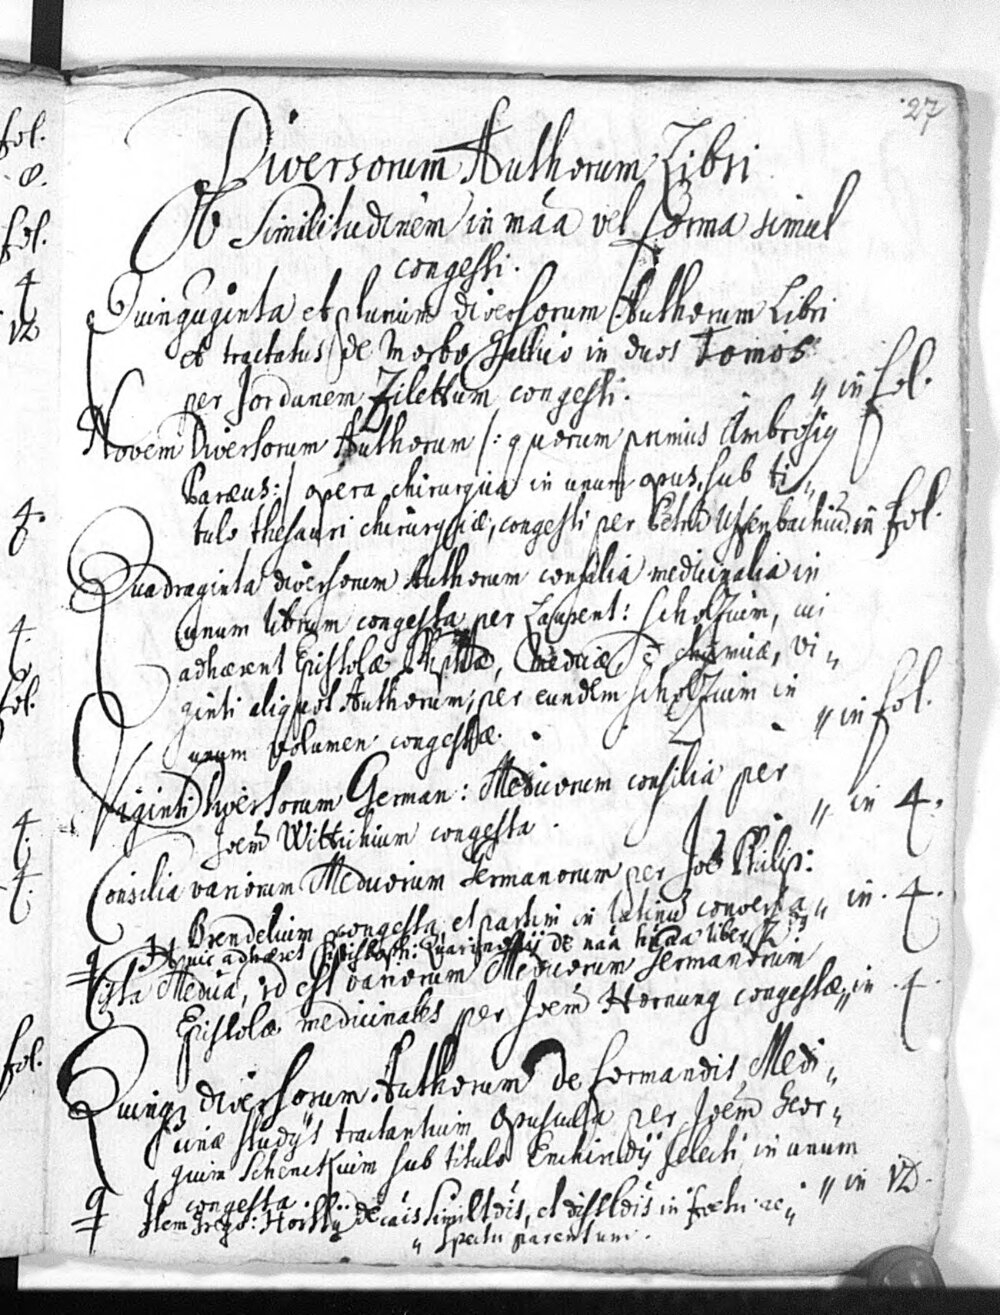 27
Diversorum Authorum Libri
Ob Similitudinem in māa vel forma simul
congesti.
Quinquginta et plurium diversorum Authorum Libri
et tractatus de Morbo Gallico in duos Tomos
per Jordanem Zilettum congesti. " in fol.
Novem Diversorum Authorum /: quorum primus Ambrosiy
Paræus :/ opera chirurgica in unum opus, sub ti„
tulo thesauri chirurgiæ, congesti per Petrū Uffenbachiū. in fol.
Quadraginta diversorum Authorum consilia medicinalia in
unum librum congesta per Laurent: Scholzium, cui
adhærent Epistolæ Medicæ chimicæ, Vi„
ginti aliquot Authorum, per eundem Scholzium in
unum volumen congestæ. " in fol.
Viginti diversorum German: Medicorum consilia per
Joēm Wittichium congesta. " in 4.
Consilia variorum Medicorum Germanorum per Joē Philip:
Brendelium congesta, et partim in latinū conversa " in 4.
Huic adhæret de liber
Cista Medica, id est variorum Medicorum Germanorum
Epistolæ medicinales per Joēm Hornung congestæ, " in 4.
Quinqz diversorum Authorum de formandis Medi„
cinæ studijs tractantium Opuscula per Joēm Geor„
gium Schenckium sub titulo Enchiridij selecti in unum
congesta. " in 12.
Item Grego: Horstij de cāis similtdīs, et disstldīs in foetu re„
„ spectu parentum.
fol.
8.
fol.
4
12
4.
4.
fol.
4.
4.
fol.